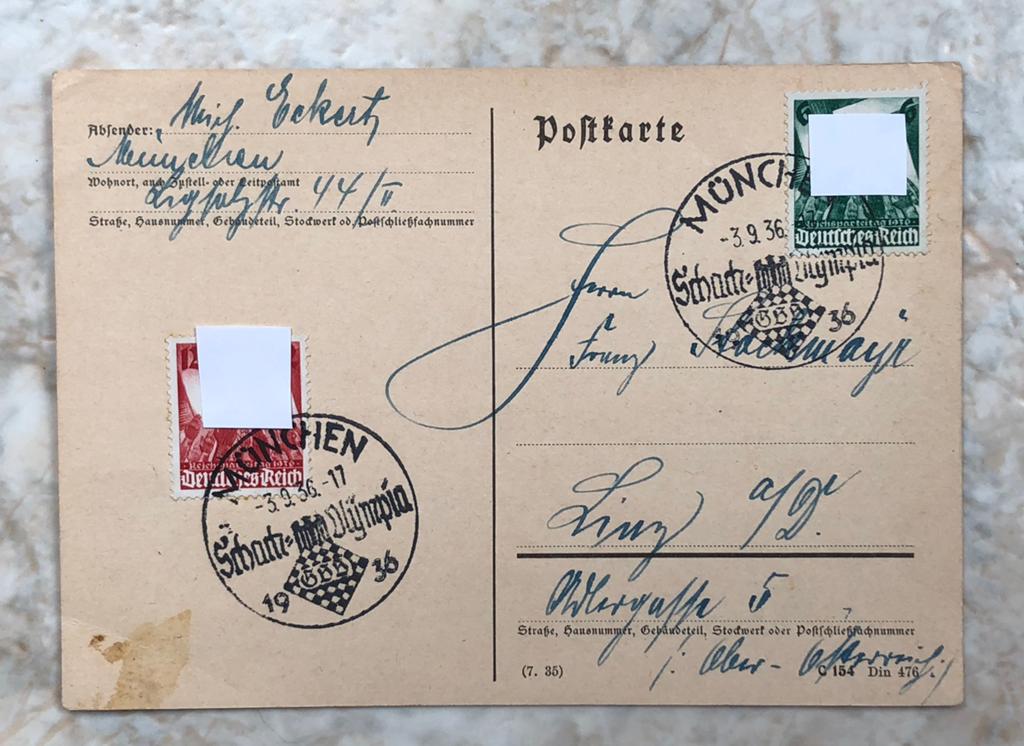 Absender: Mich. Eckert,
München
Wohnort, auch Zustell- oder Leitpostamt
Ligsalzstr. 44/II
Straße, Hausnummer, Gebäudeteil, Stockwerk od. Postschließfachnummer
12
Reichsparteitag 1936
Deutsches Reich
MÜNCHEN
-3.9.36.-17
Schach- Olympia
GSB
19 36
Postkarte
6
Reichsparteitag 1936
Deutsches Reich
MÜNCH
-3.9.36
Schach- Olympia
GSB
19 36
Herrn
Franz
Linz a/D.
Adlergasse 5
Straße, Hausnummer, Gebäudeteil, Stockwerk oder Postschließfachnummer
/: Ober-Österreich :/
(7. 35) C 154 Din 476